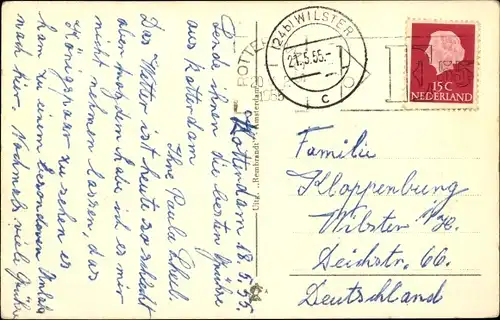 Rottendam 18.5.55.
Sende ihnen die besten Grüsse
aus Rottendam
Ihre Paula
Das Wetter ist heute so schlecht
aber trozdem habe ich es mir
nicht nehmen lassen, das
Königspaar zu sehen es
kam zu einem besonderen
nach hier. Nochmals viele Grüsse
Uitg. „Rembrandt" Amsterdam
(24b) WILSTER
21.5.55.-
c
ROTTER
1955
15C
NEDERLAND
Familie
Kloppenburg
Wilster
Deichstr. 66.
Deutschland